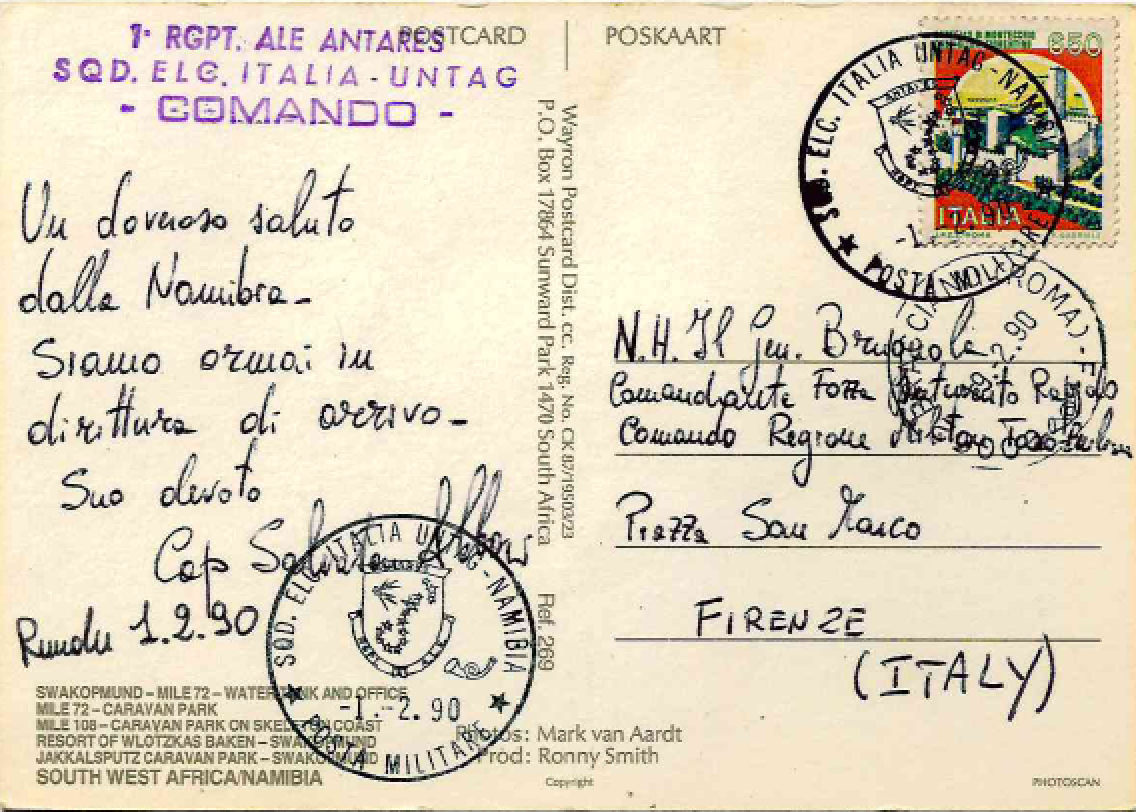 1° RGPT. ALE ANTARES
SQD. ELC. ITALIA - UNTAG
- COMANDO -
POSTCARD
POSKAART
Un doveroso saluto
dalla Namibia -
Siamo ormai in
dirittura di arrivo -
Suo devoto
Cap
Rundu 1.2.90
SWAKOPMUND – MILE 72 – WATER TANK AND OFFICE
MILE 72 – CARAVAN PARK
MILE 108 – CARAVAN PARK ON SKELETON COAST
RESORT OF WLOTZKAS BAKEN – SWAKOPMUND
JAKKALSPUTZ CARAVAN PARK – SWAKOPMUND
SOUTH WEST AFRICA/NAMIBIA
SQD. ELC. ITALIA UNTAG - NAMIBIA
-1.-2.90
POSTA MILITARE
Wayron Postcard Dist. cc. Reg. No. CK 87/19503/23
P.O. Box 17864 Sunward Park 1470 South Africa Ref. 269
Photos: Mark van Aardt
Prod: Ronny Smith
Copyright
PHOTOSCAN
650
ITALIA
SQD. ELC. ITALIA UNTAG - NAMIBIA
POSTA MILITARE
(ROMA)
N.H. Il Gen.
Comandante Forza Intervento Rapido
Comando Regione Militare
Piazza San Marco
FIRENZE
(ITALY)